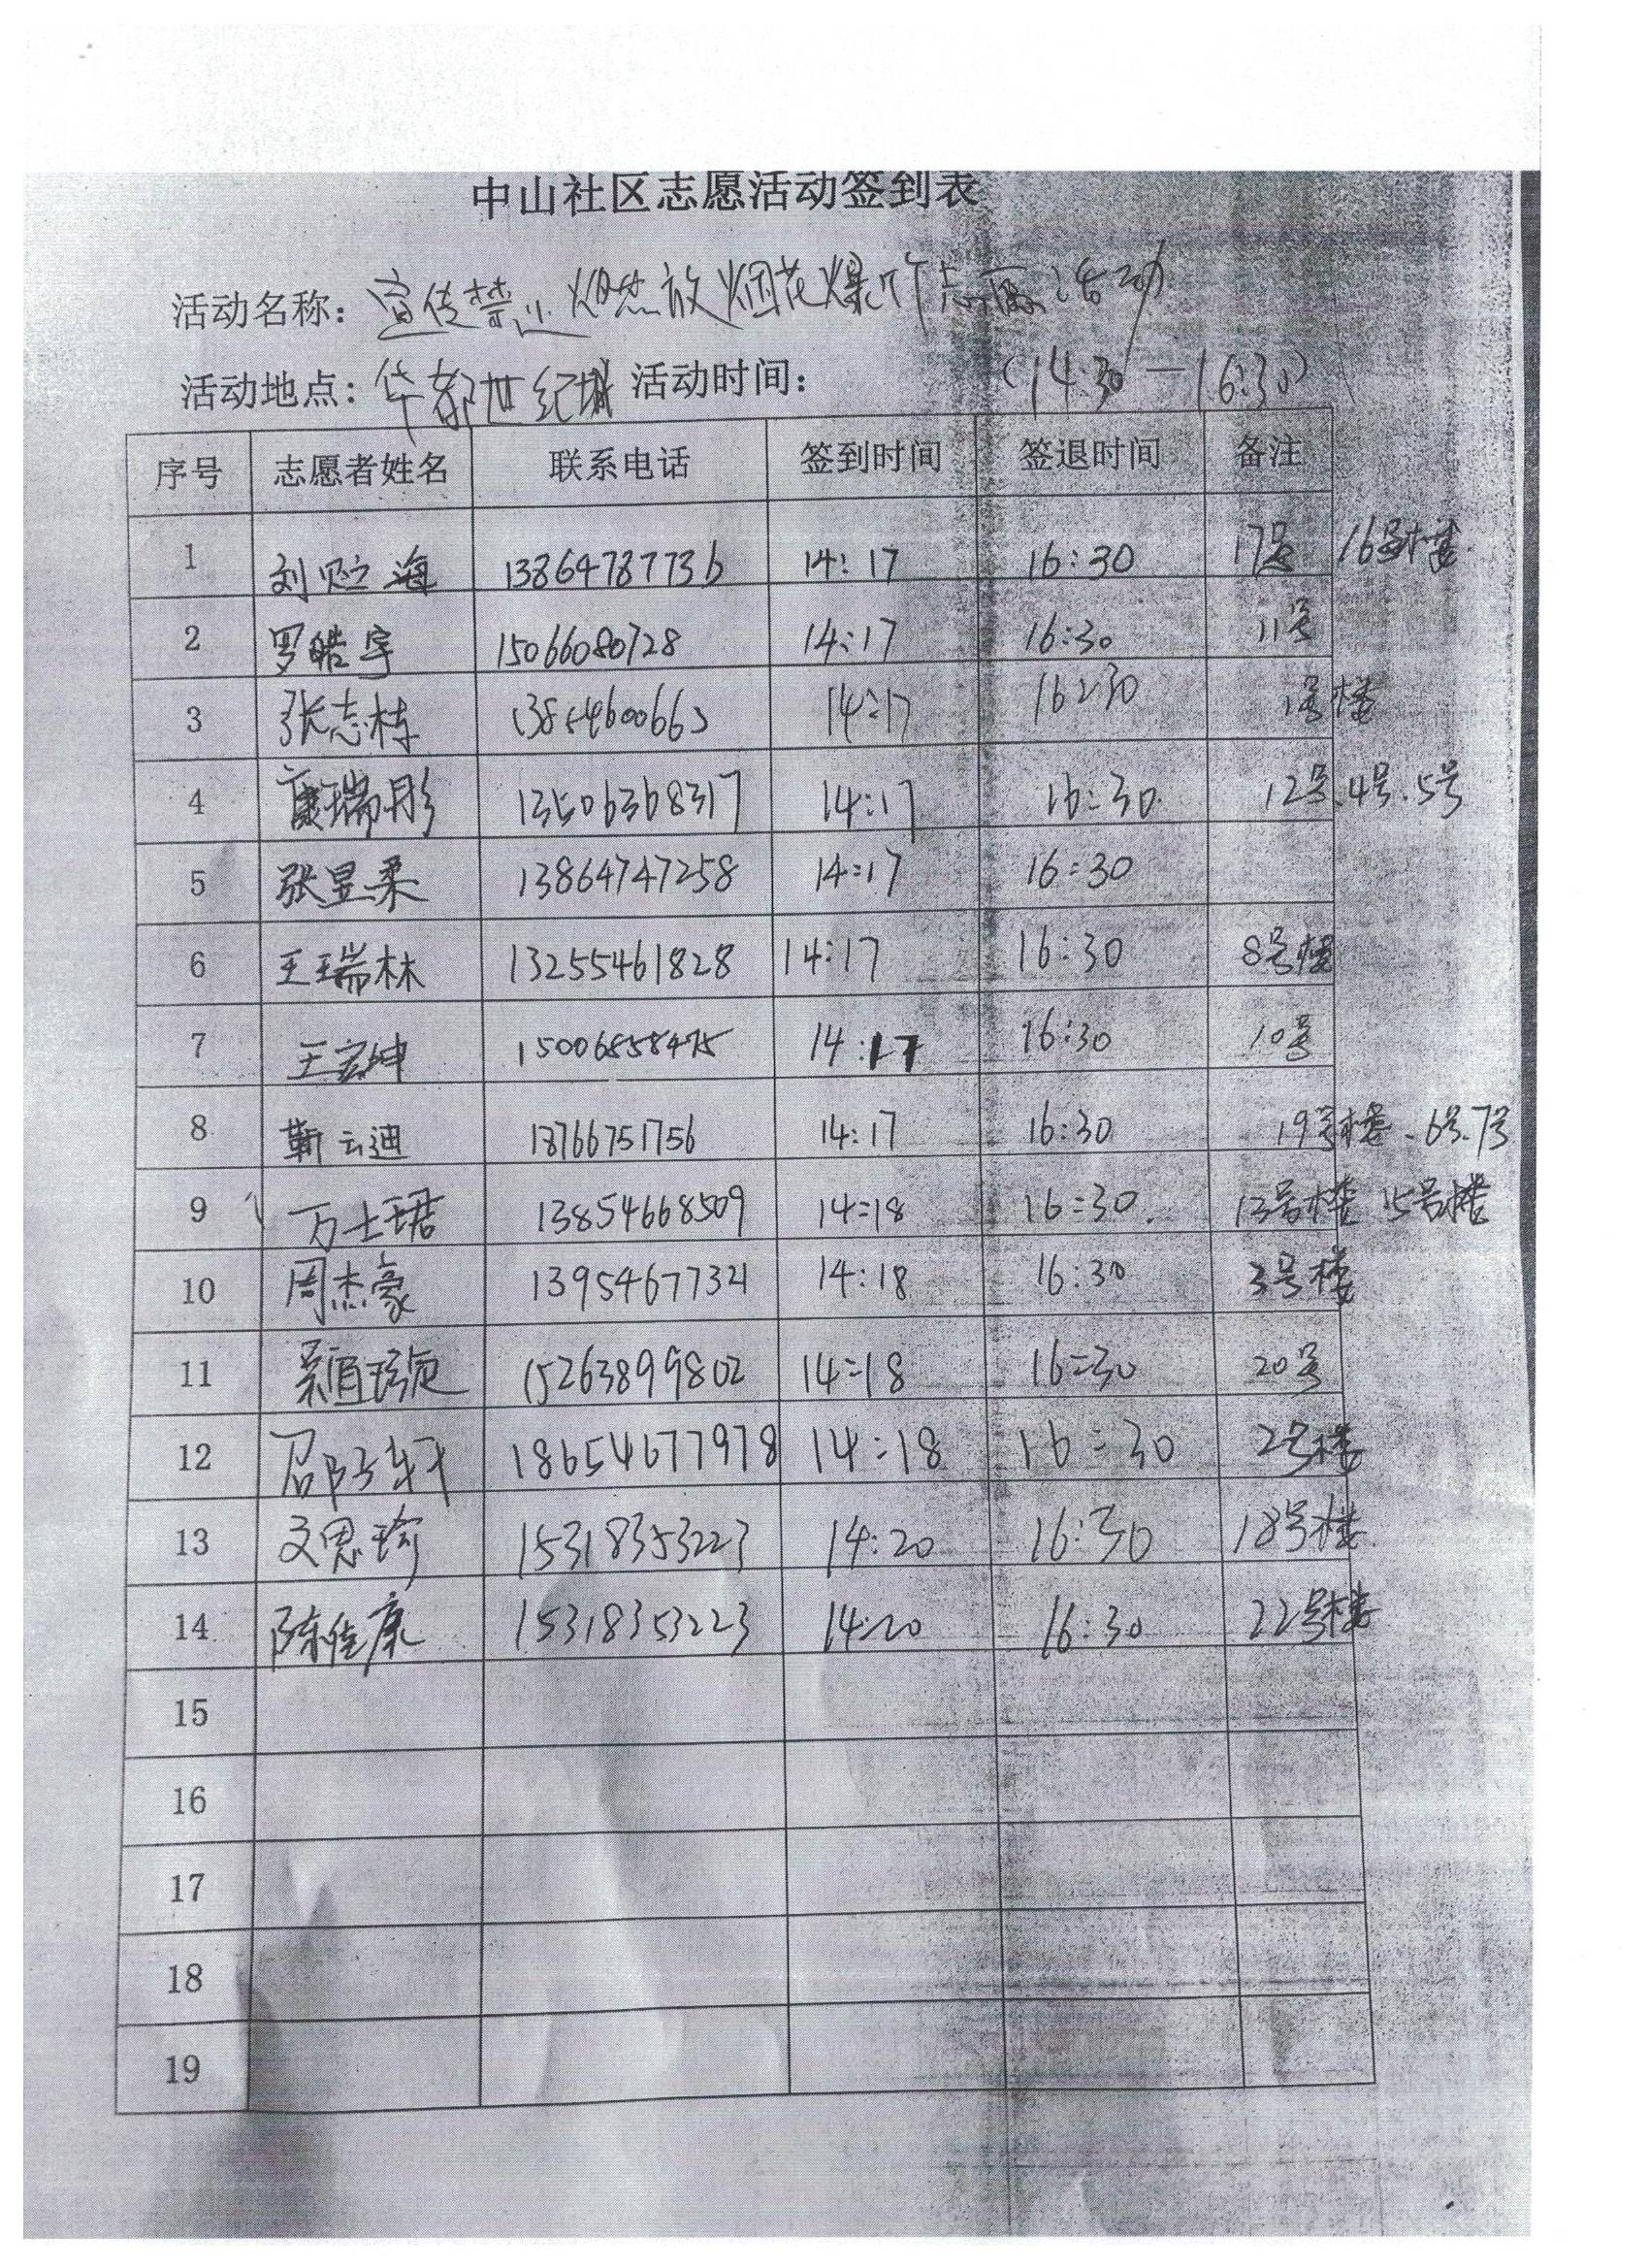 中山社区志愿活动签到表
活动名称：宣传禁止燃放烟花爆竹志愿活动
活动地点：华都世纪城 活动时间： （14:30—16:30）
序号 志愿者姓名 联系电话 签到时间 签退时间 备注
1 刘贻海 13864787736 14:17 16:30 17号 16号楼
2 罗皓宇 15066080728 14:17 16:30 11号
3 张志栋 14:17 16:30 1号楼
4 康瑞彤 13506368317 14:17 16:30 12号.4号.5号
5 张昱柔 13864747258 14:17 16:30
6 王瑞林 13255461828 14:17 16:30 8号楼
7 王宏坤 15006858475 14:17 16:30 10号
8 靳云迪 18766751756 14:17 16:30 19号楼.6号.7号
9 万士琚 13854668509 14:18 16:30 13号楼 15号楼
10 周杰豪 13954677321 14:18 16:30 3号楼
11 15263899802 14:18 16:30 20号
12 邵子轩 18654677978 14:18 16:30 2号楼
13 文思瑜 15318353223 14:20 16:30 18号楼
14 陈佳康 15318353223 14:20 16:30 22号楼
15
16
17
18
19